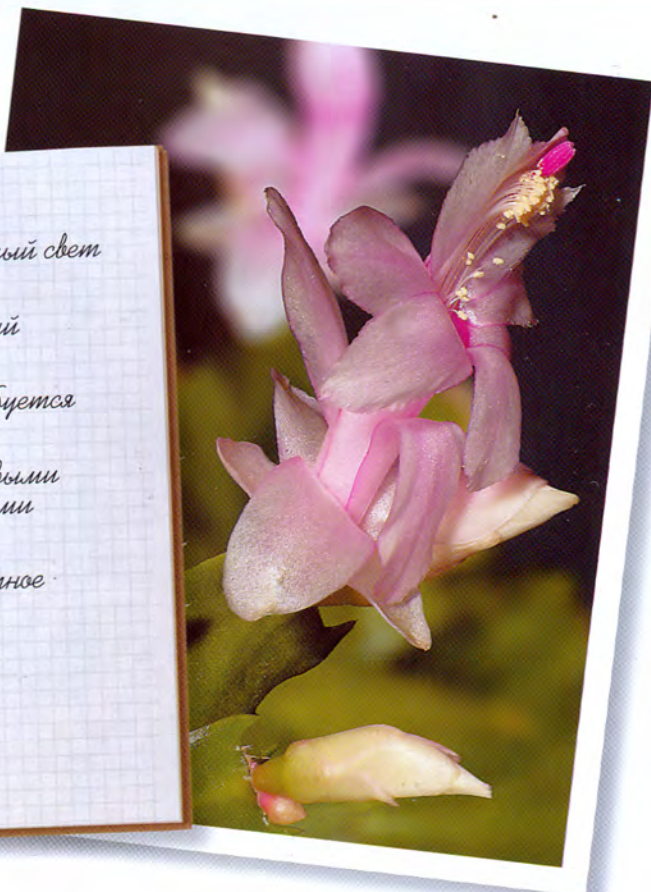 ый свет
ий
буется
выми
ми
ное